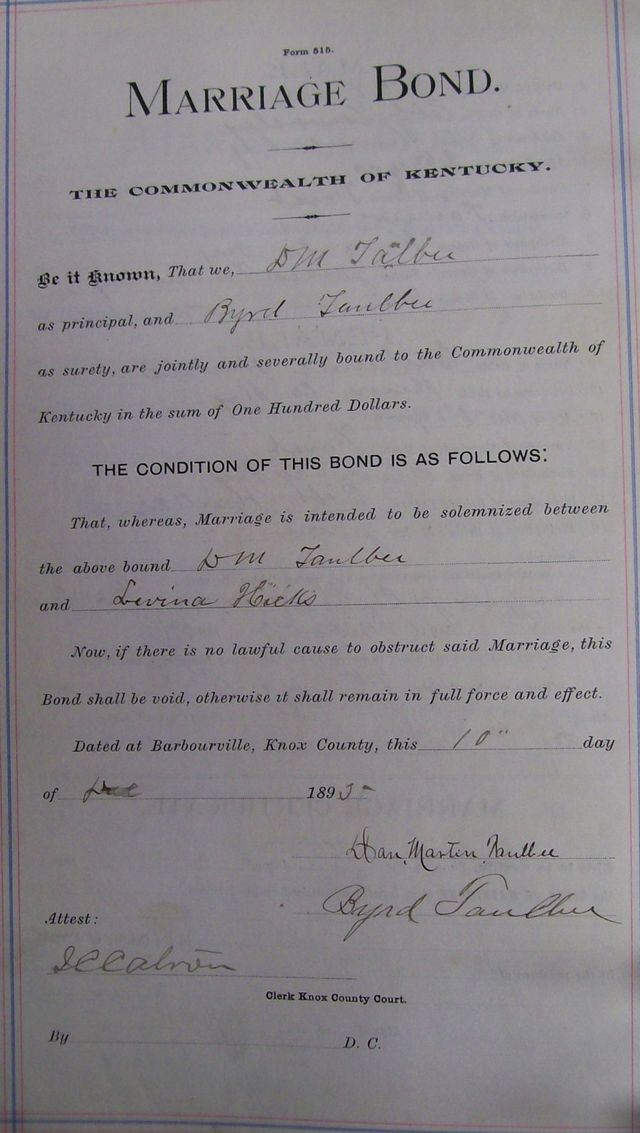 Form 515.
MARRIAGE BOND.
THE COMMONWEALTH OF KENTUCKY.
Be it Known, That we, D M Talbee
as principal, and Byrd Taulbee
as surety, are jointly and severally bound to the Commonwealth of
Kentucky in the sum of One Hundred Dollars.
THE CONDITION OF THIS BOND IS AS FOLLOWS:
That, whereas, Marriage is intended to be solemnized between
the above bound D M Taulbee
and Levina Hicks
Now, if there is no lawful cause to obstruct said Marriage, this
Bond shall be void, otherwise it shall remain in full force and effect.
Dated at Barbourville, Knox County, this 10" day
of 1895
Dan Marten Taulbee
Byrd Taulbee
Attest:
Clerk Knox County Court.
By D. C.